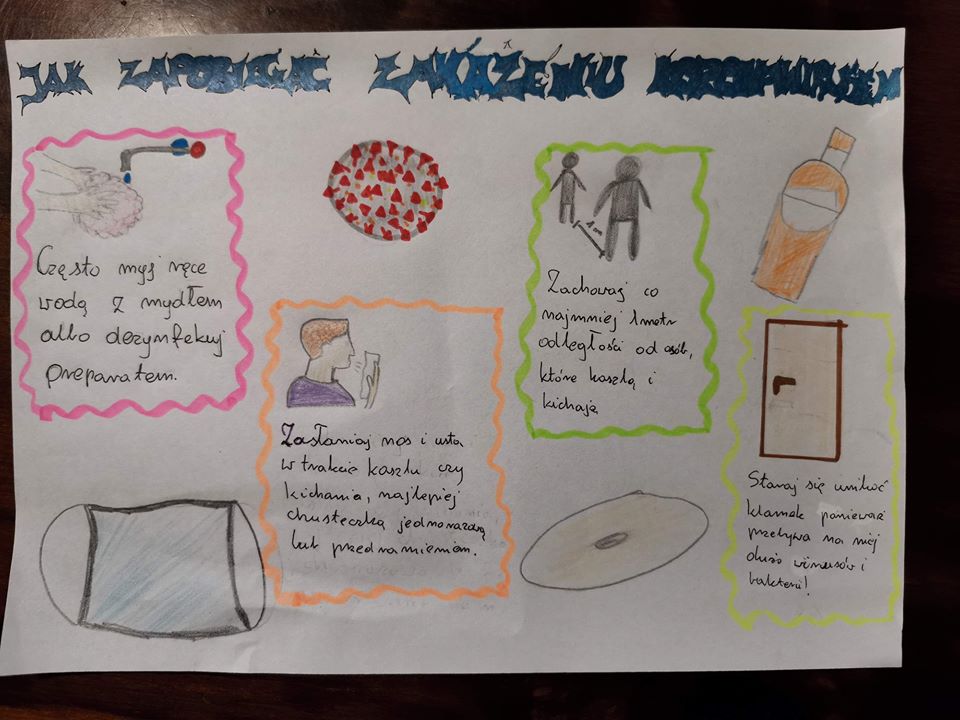 JAK ZAPOBIEGAĆ ZAKAŻENIU KORONAWIRUSEM
Często myj ręce
wodą z mydłem
albo dezynfekuj
preparatem.
Zasłaniaj nos i usta
w trakcie kaszlu czy
kichania, najlepiej
chusteczką jednorazową
lub przedramieniem.
1 m
Zachowaj co
najmniej 1 metr
odległości od osób,
które kaszlą i
kichają
Staraj się unikać
klamek ponieważ
przebywa na niej
dużo wirusów i
bakterii!